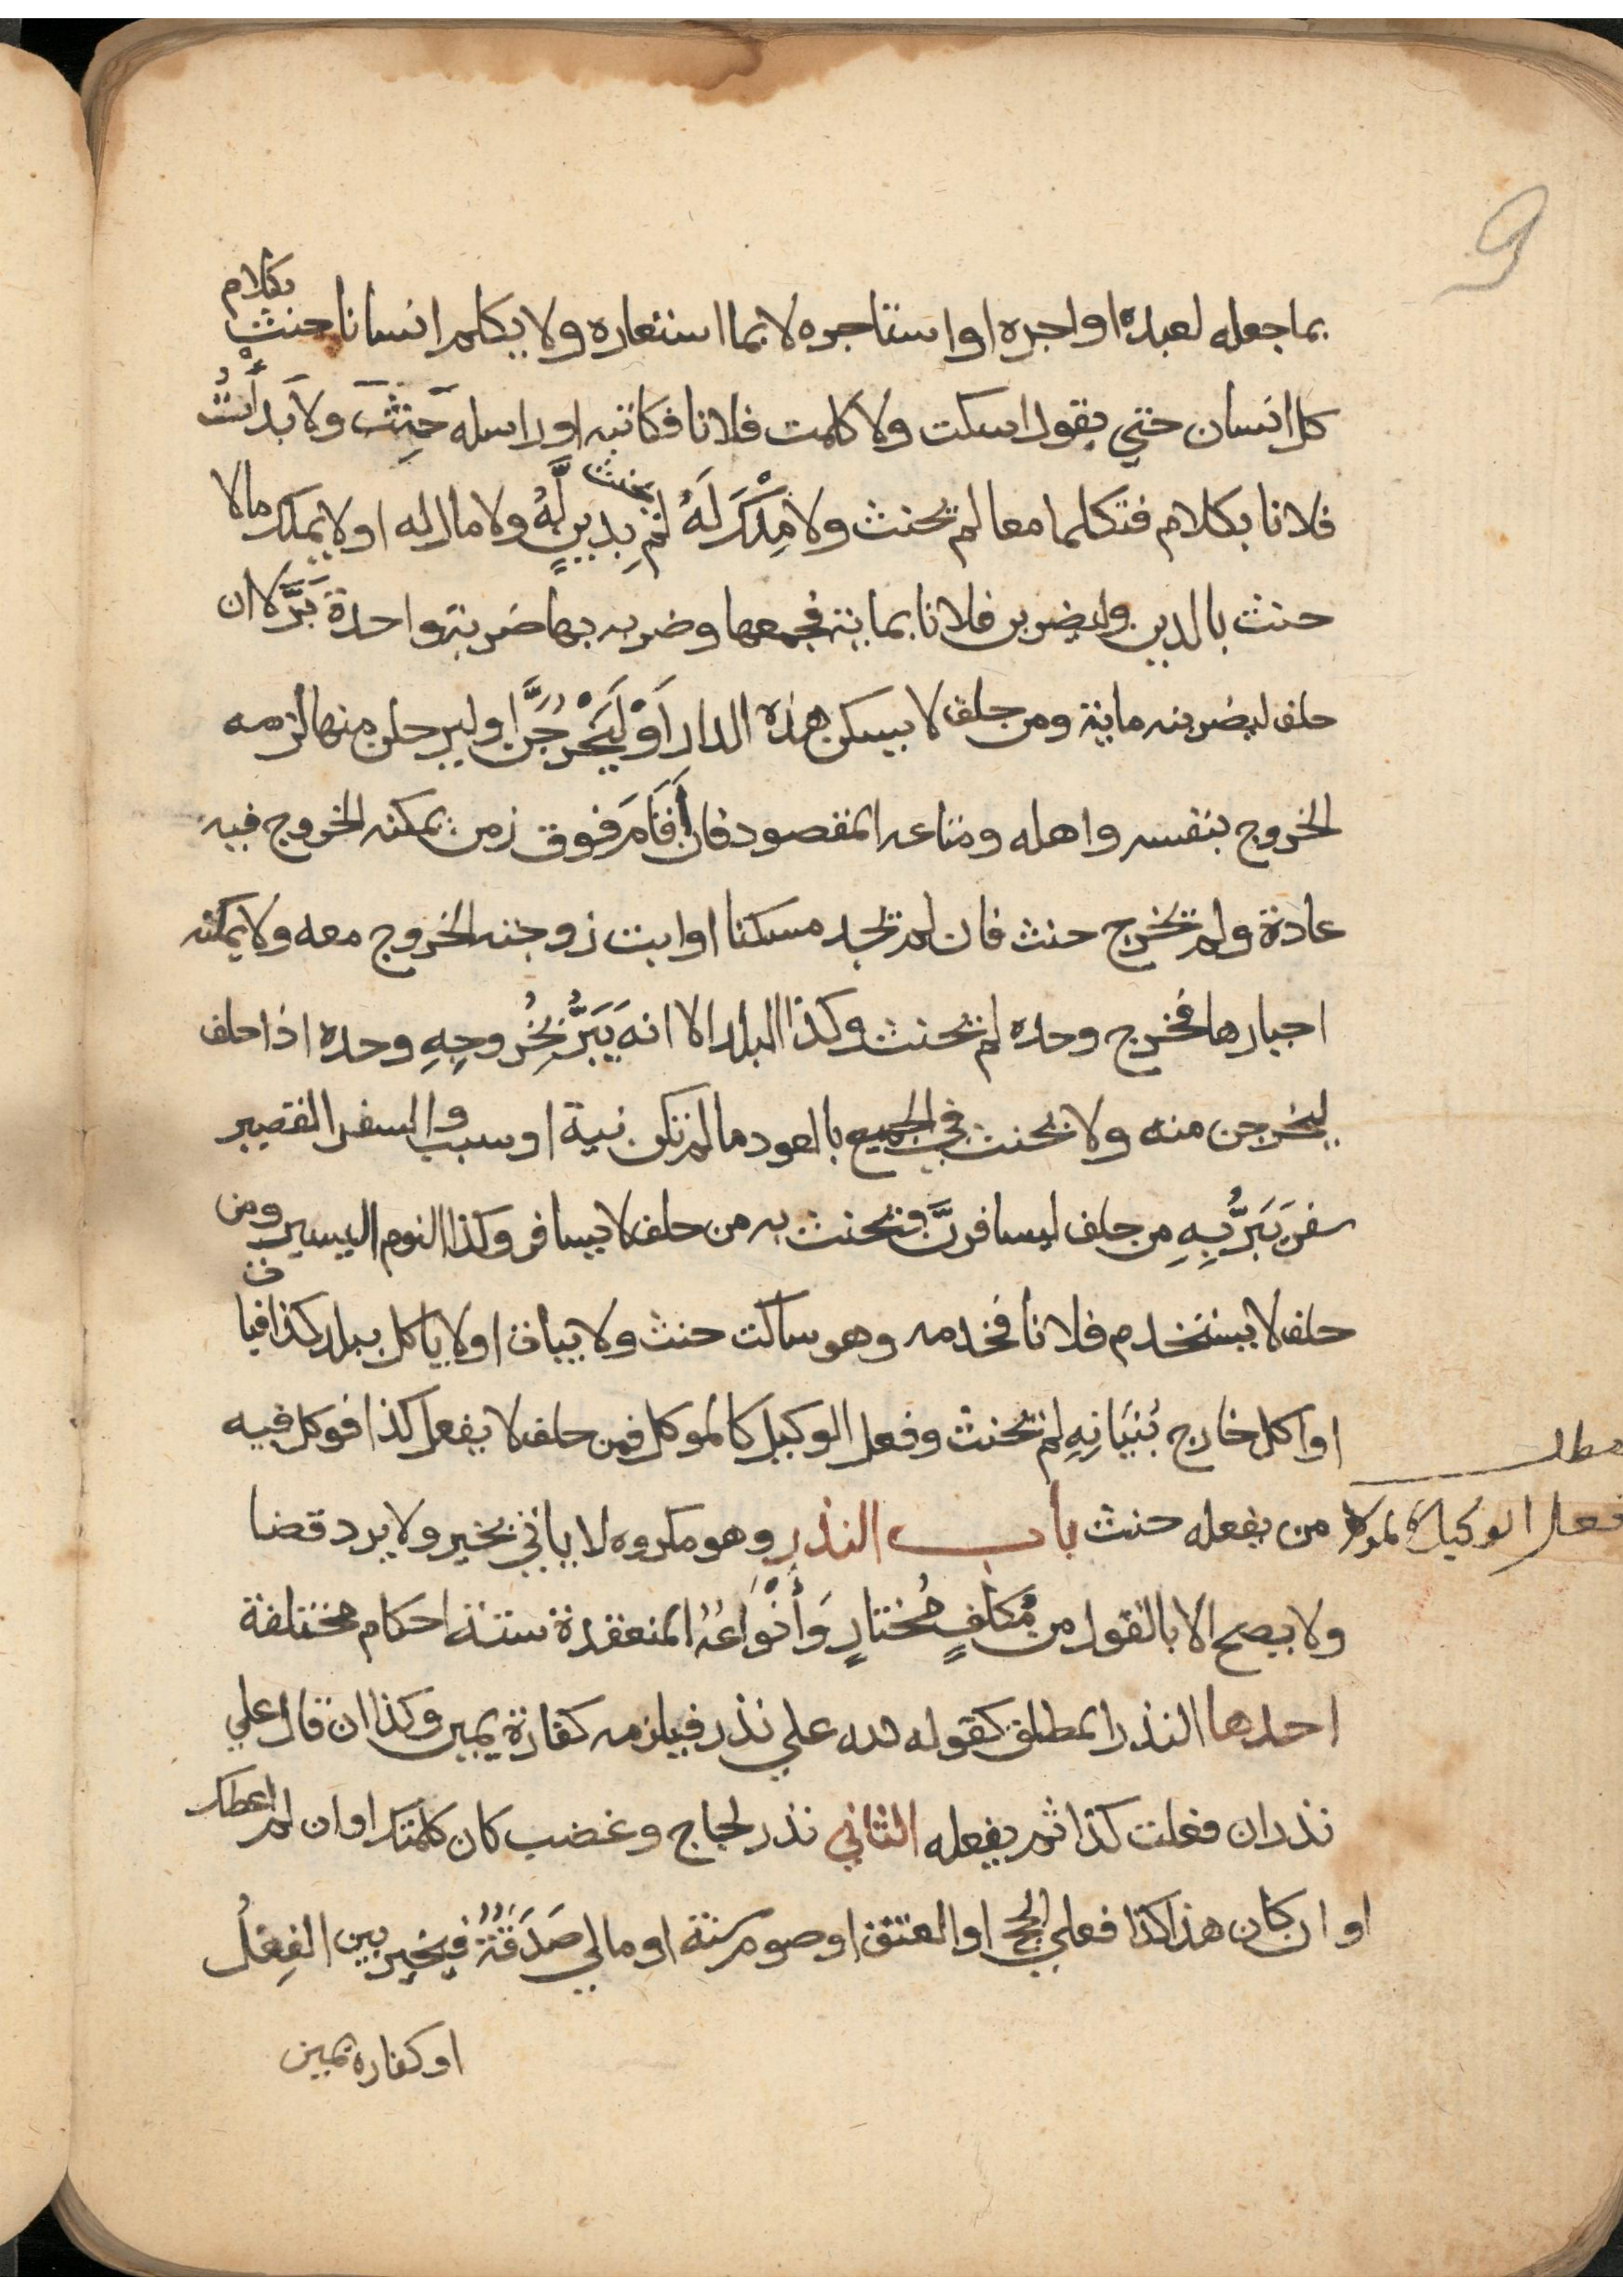 بما جعله لعبده او اجره او استاجره لا بما استعاره ولا يكلم انسانا حنث بكلام
كل انسان حتي يقول اسكت ولا كلمت فلانا فكاتبه او راسله حَنِثَ ولا بَدأْتُ
فلانا بكلام فتكلما معا لم يحنث ولا مِلْكَ لَهُ لم يحنث بِدينٍ لَّهُ ولا مال له او لا يملك مالا
حنث بالدين وليضربن فلانا بماية فجمعها وضربه بها ضربة واحدة بَرَّ لا ان
حلف ليضربنه ماية ومن حلف لا يسكن هذه الدار أَوْ لَيَخْرُجَنَّ او ليرحلن منها لزمه
الخروج بنفسه واهله ومتاعه المقصود فان أَقَامَ فوق زمن يمكنه الخروج فيه
عادة ولم يخرج حنث فان لم يجد مسكنا او ابت زوجته الخروج معه ولا يمكنه
اجبارها فخرج وحده لم يحنث وكذا البلد الا انه يَبَرُّ بِخُروجِهِ وحده اذا حلف
ليخرجن منه ولا يحنث في الجميع بالعود ما لم تكن نية او سبب والسفر القصير
سفر يَبَرُّ بِهِ من حلف ليسافرنَّ ويحنث به من حلف لا يسافر وكذا النوم اليسير ومن
حلف لا يستخدم فلانا فخدمه وهو ساكت حنث ولا يبات او لا ياكل ببلد كذا فبات
او اكل خارج بُنْيَانِهِ لم يحنث وفعل الوكيل كالموكل فمن حلف لا يفعل كذا فوكل فيه
مطلب
فعل الوكيل كالموكل
من يفعله حنث باب النذر وهو مكروه لا ياتي بخير ولا يرد قضا
ولا يصح الا بالقول من مُكَلَّفٍ مُختارٍ وَأَنْوَاعُهُ المنعقدة ستة احكام مختلفة
احدها النذر المطلق كقوله لله علي نذر فيلزمه كفارة يمين وكذا ان قال علي
نذر ان فعلت كذا ثم يفعله الثاني نذر لجاج وغضب كان كلمتك او ان لم اعطك
او ان كان هذا كذا فعلي الحج او العتق او صوم سنة او مالي صَدَقَةٌ فيخير بين الفِعْلِ
او كفاره يمين